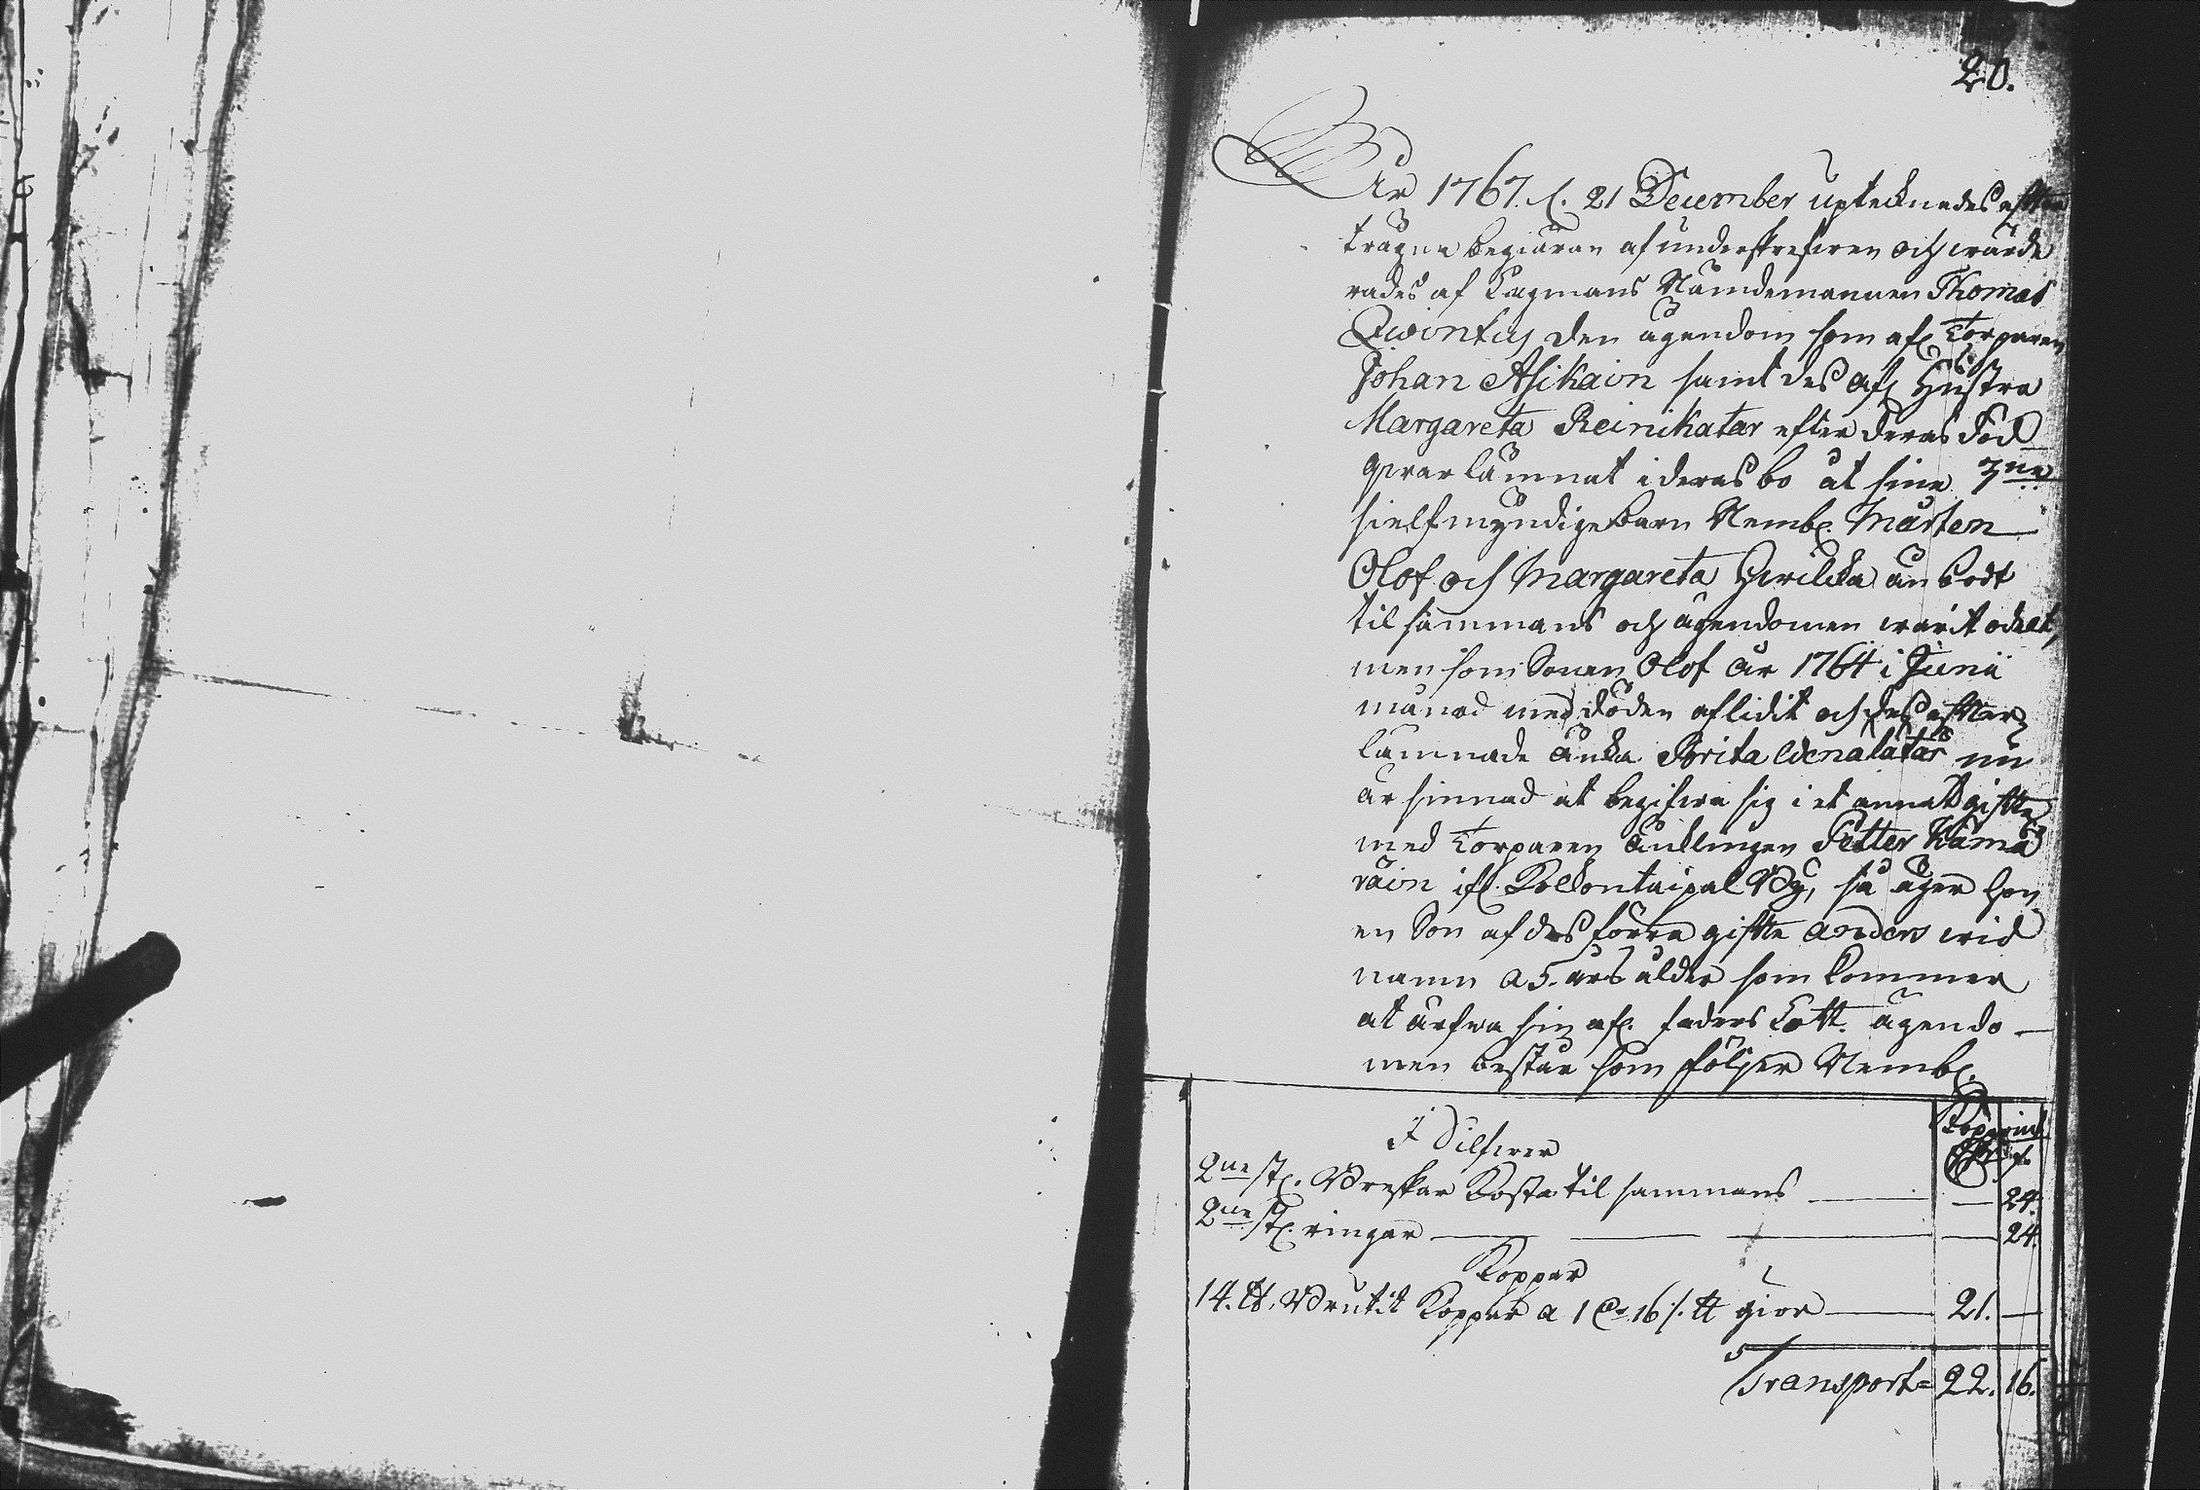 20.
År 1767. d. 21 December uptecknades efter
trägne begiäran af underskrefwen och wärde
rades af Lagmans Nämdemannen Thomas
Qwintus den ägendom som afl. Torparen
Johan Asikain samt des afl. Hustro
Margareta Reinikatar efter deras död
qwarlämnat i deras bo åt sine 3ne
sielfmyndige barn Nembl. Mårten
Olof och Margareta Hwilcka än bodt
tilsammans och ägendomen warit odelt,
men som Sonen Olof år 1764 i Junii
månad med döden aflidit och des efter
lämnade Änka Brita Wenalatar nu
är sinnad at begifwa sig i et annat gifte
med Torparen Änklingen Petter Kämä
räin ifl. Kolkontaipal By, så äger hon
en Son af des förra gifte Anders wid
namn a 5. års ålder som kommer
at ärfwa sin afl. faders Lott. ägendo-
men bestär som följer Nembl.
Kopparmt
I Silfwer
2ne st. Breskor kosta til sammans — 24.
2ne st. ringar — 24.
Koppar
14. ℔. Brukit Koppar a 1 Dr 16 /. ℔ giör 21. —
Transport = 22. 16.